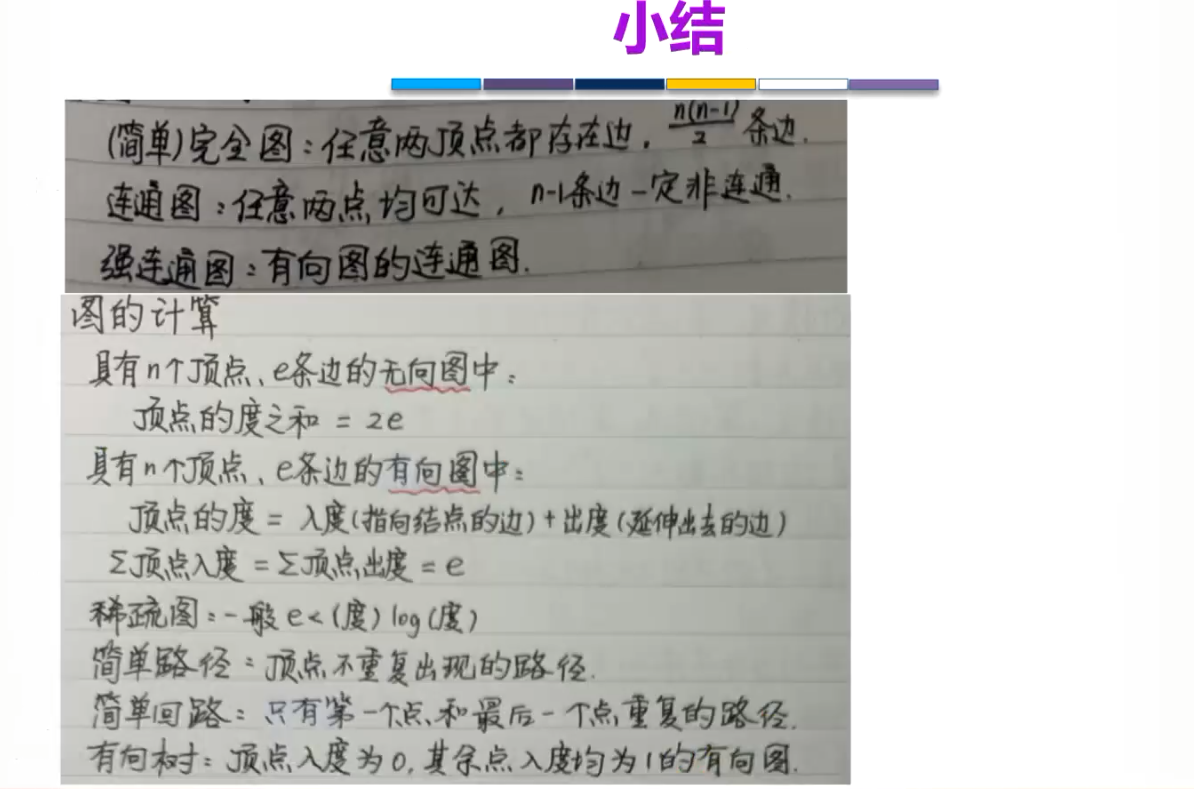 小结
(简单)完全图：任意两顶点都存在边，n(n-1)/2 条边.
连通图：任意两点均可达，n-1条边一定非连通.
强连通图：有向图的连通图.
图的计算
具有n个顶点、e条边的无向图中：
顶点的度之和 = 2e
具有n个顶点、e条边的有向图中：
顶点的度 = 入度(指向结点的边)+出度(延伸出去的边)
Σ顶点入度 = Σ顶点出度 = e
稀疏图：一般 e<(度)log(度)
简单路径：顶点不重复出现的路径.
简单回路：只有第一个点和最后一个点重复的路径.
有向树：顶点入度为0,其余点入度均为1的有向图.